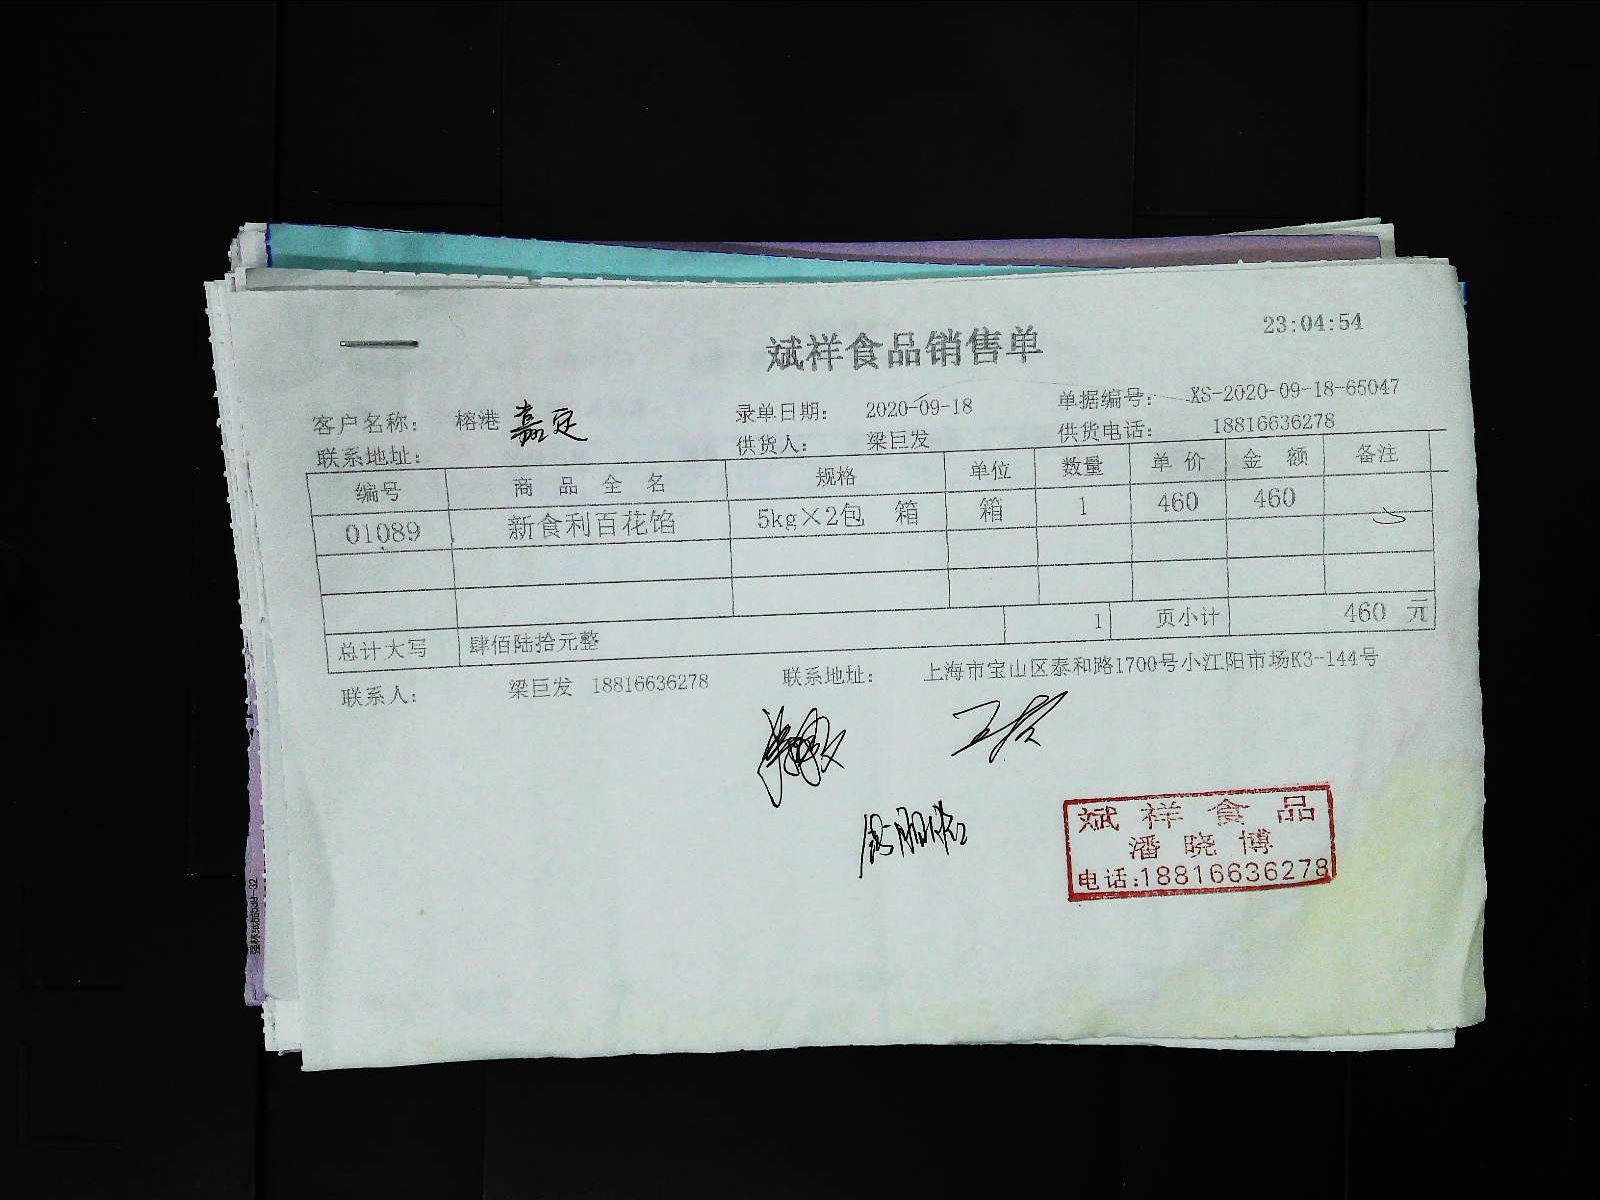 斌祥食品销售单
23:04:54
客户名称： 榕港 嘉定 录单日期： 2020-09-18 单据编号： XS-2020-09-18-65047
联系地址： 供货人： 梁巨发 供货电话： 18816636278
编号 商品全名 规格 单位 数量 单价 金额 备注
01089 新食利百花馅 5kg×2包 箱 箱 1 460 460
总计大写 肆佰陆拾元整 1 页小计 460 元
联系人： 梁巨发 18816636278 联系地址： 上海市宝山区泰和路1700号小江阳市场K3-144号
斌祥食品
潘晓博
电话:18816636278